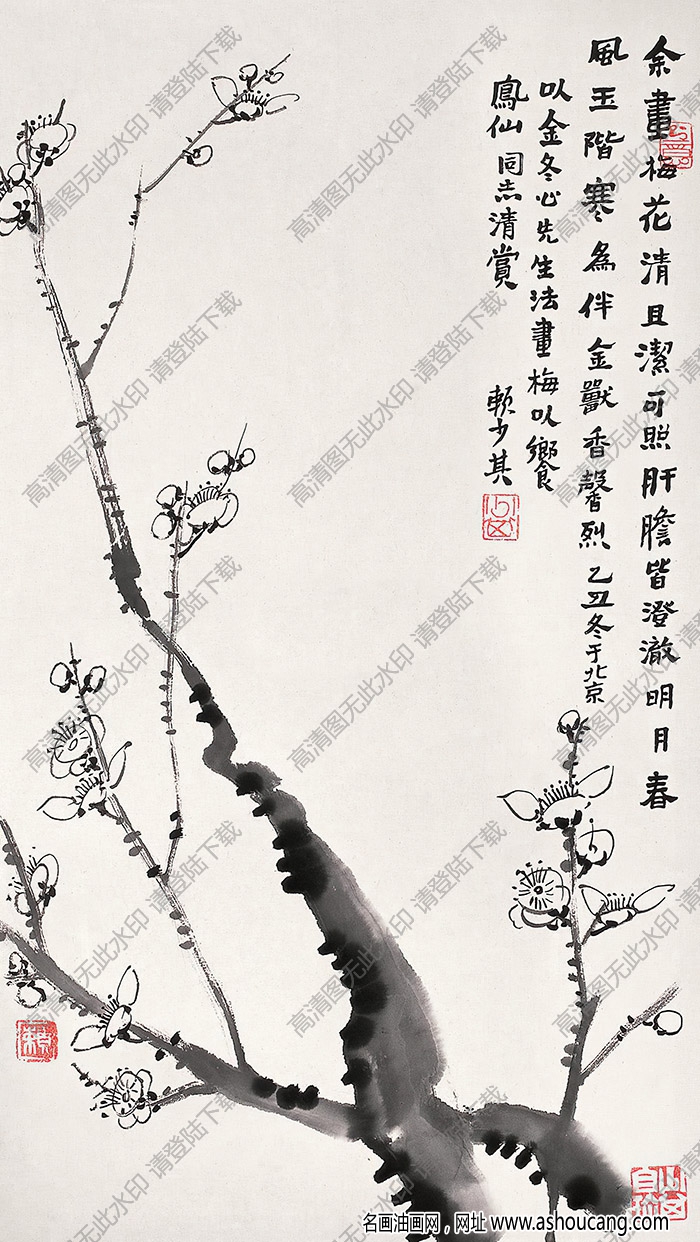 余畫梅花清且潔可照肝膽皆澄澈明月春
風玉階寒為伴金獸香馨烈乙丑冬于北京
以金冬心先生法畫梅以饗
鳳仙同志清賞
賴少其
高清图无此水印 请登陆下载
名画油画网，网址 www.ashoucang.com